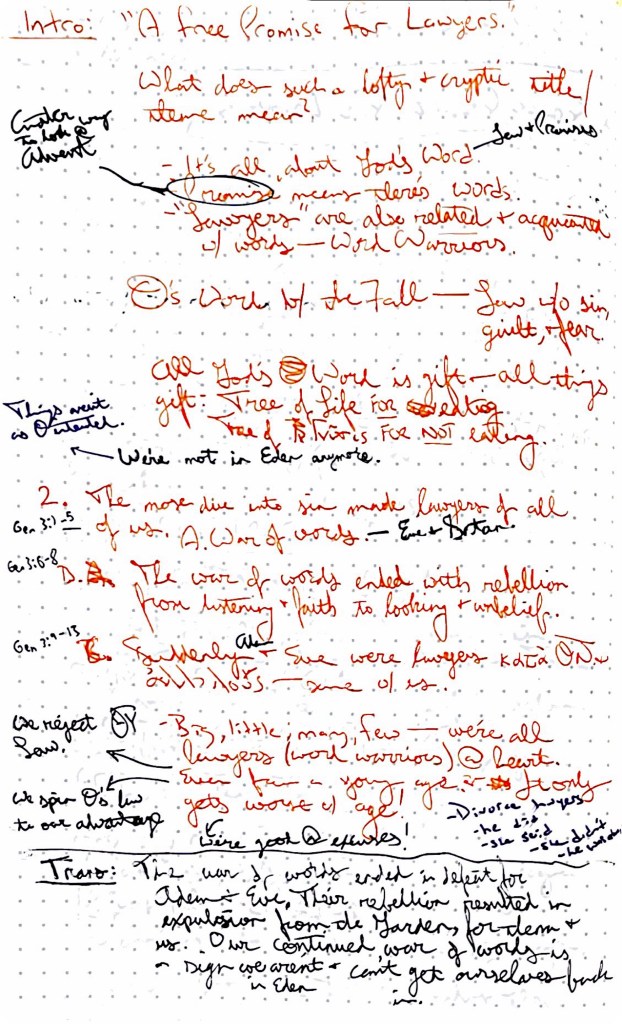 Intro: "A Free Promise for Lawyers."
What does such a lofty + cryptic title/
theme mean?
Another way
to look @
Advent
- It's all about God's Word
Law + Promises
Promise means there's words.
- "Lawyers" are also related + acquainted
w/ words — Word Warriors.
Θ's Word b/f the Fall — Law w/o sin,
guilt, + fear.
All God's Word is gift — all things
gift: Tree of Life FOR eating
Tree of is FOR NOT eating.
Things aren't
as Θ intended.
We're not in Eden anymore.
2. The nose dive into sin made lawyers of all
of us. A. War of words. — Eve + Satan
Gen 3:1-5
Gen 3:6-8
The war of words ended with rebellion
from listening + faith to looking + unbelief.
Gen 3:9-13
Suddenly Adam + Eve were lawyers κατὰ
— same w/ us.
We reject
Law.
- Big, little, many, few — we're all
lawyers (word warriors) @ heart.
Even from a young age. It only
gets worse w/ age!
We spin Θ's law
to our advantage
We're good @ excuses!
- Divorce lawyers
- he did
- she said
- she didn't
Trans: The war of words ended in defeat for
Adam + Eve. Their rebellion resulted in
expulsion from the Garden, for them +
us. Our continued war of words is
a sign we aren't + can't get ourselves back
in Eden
in.